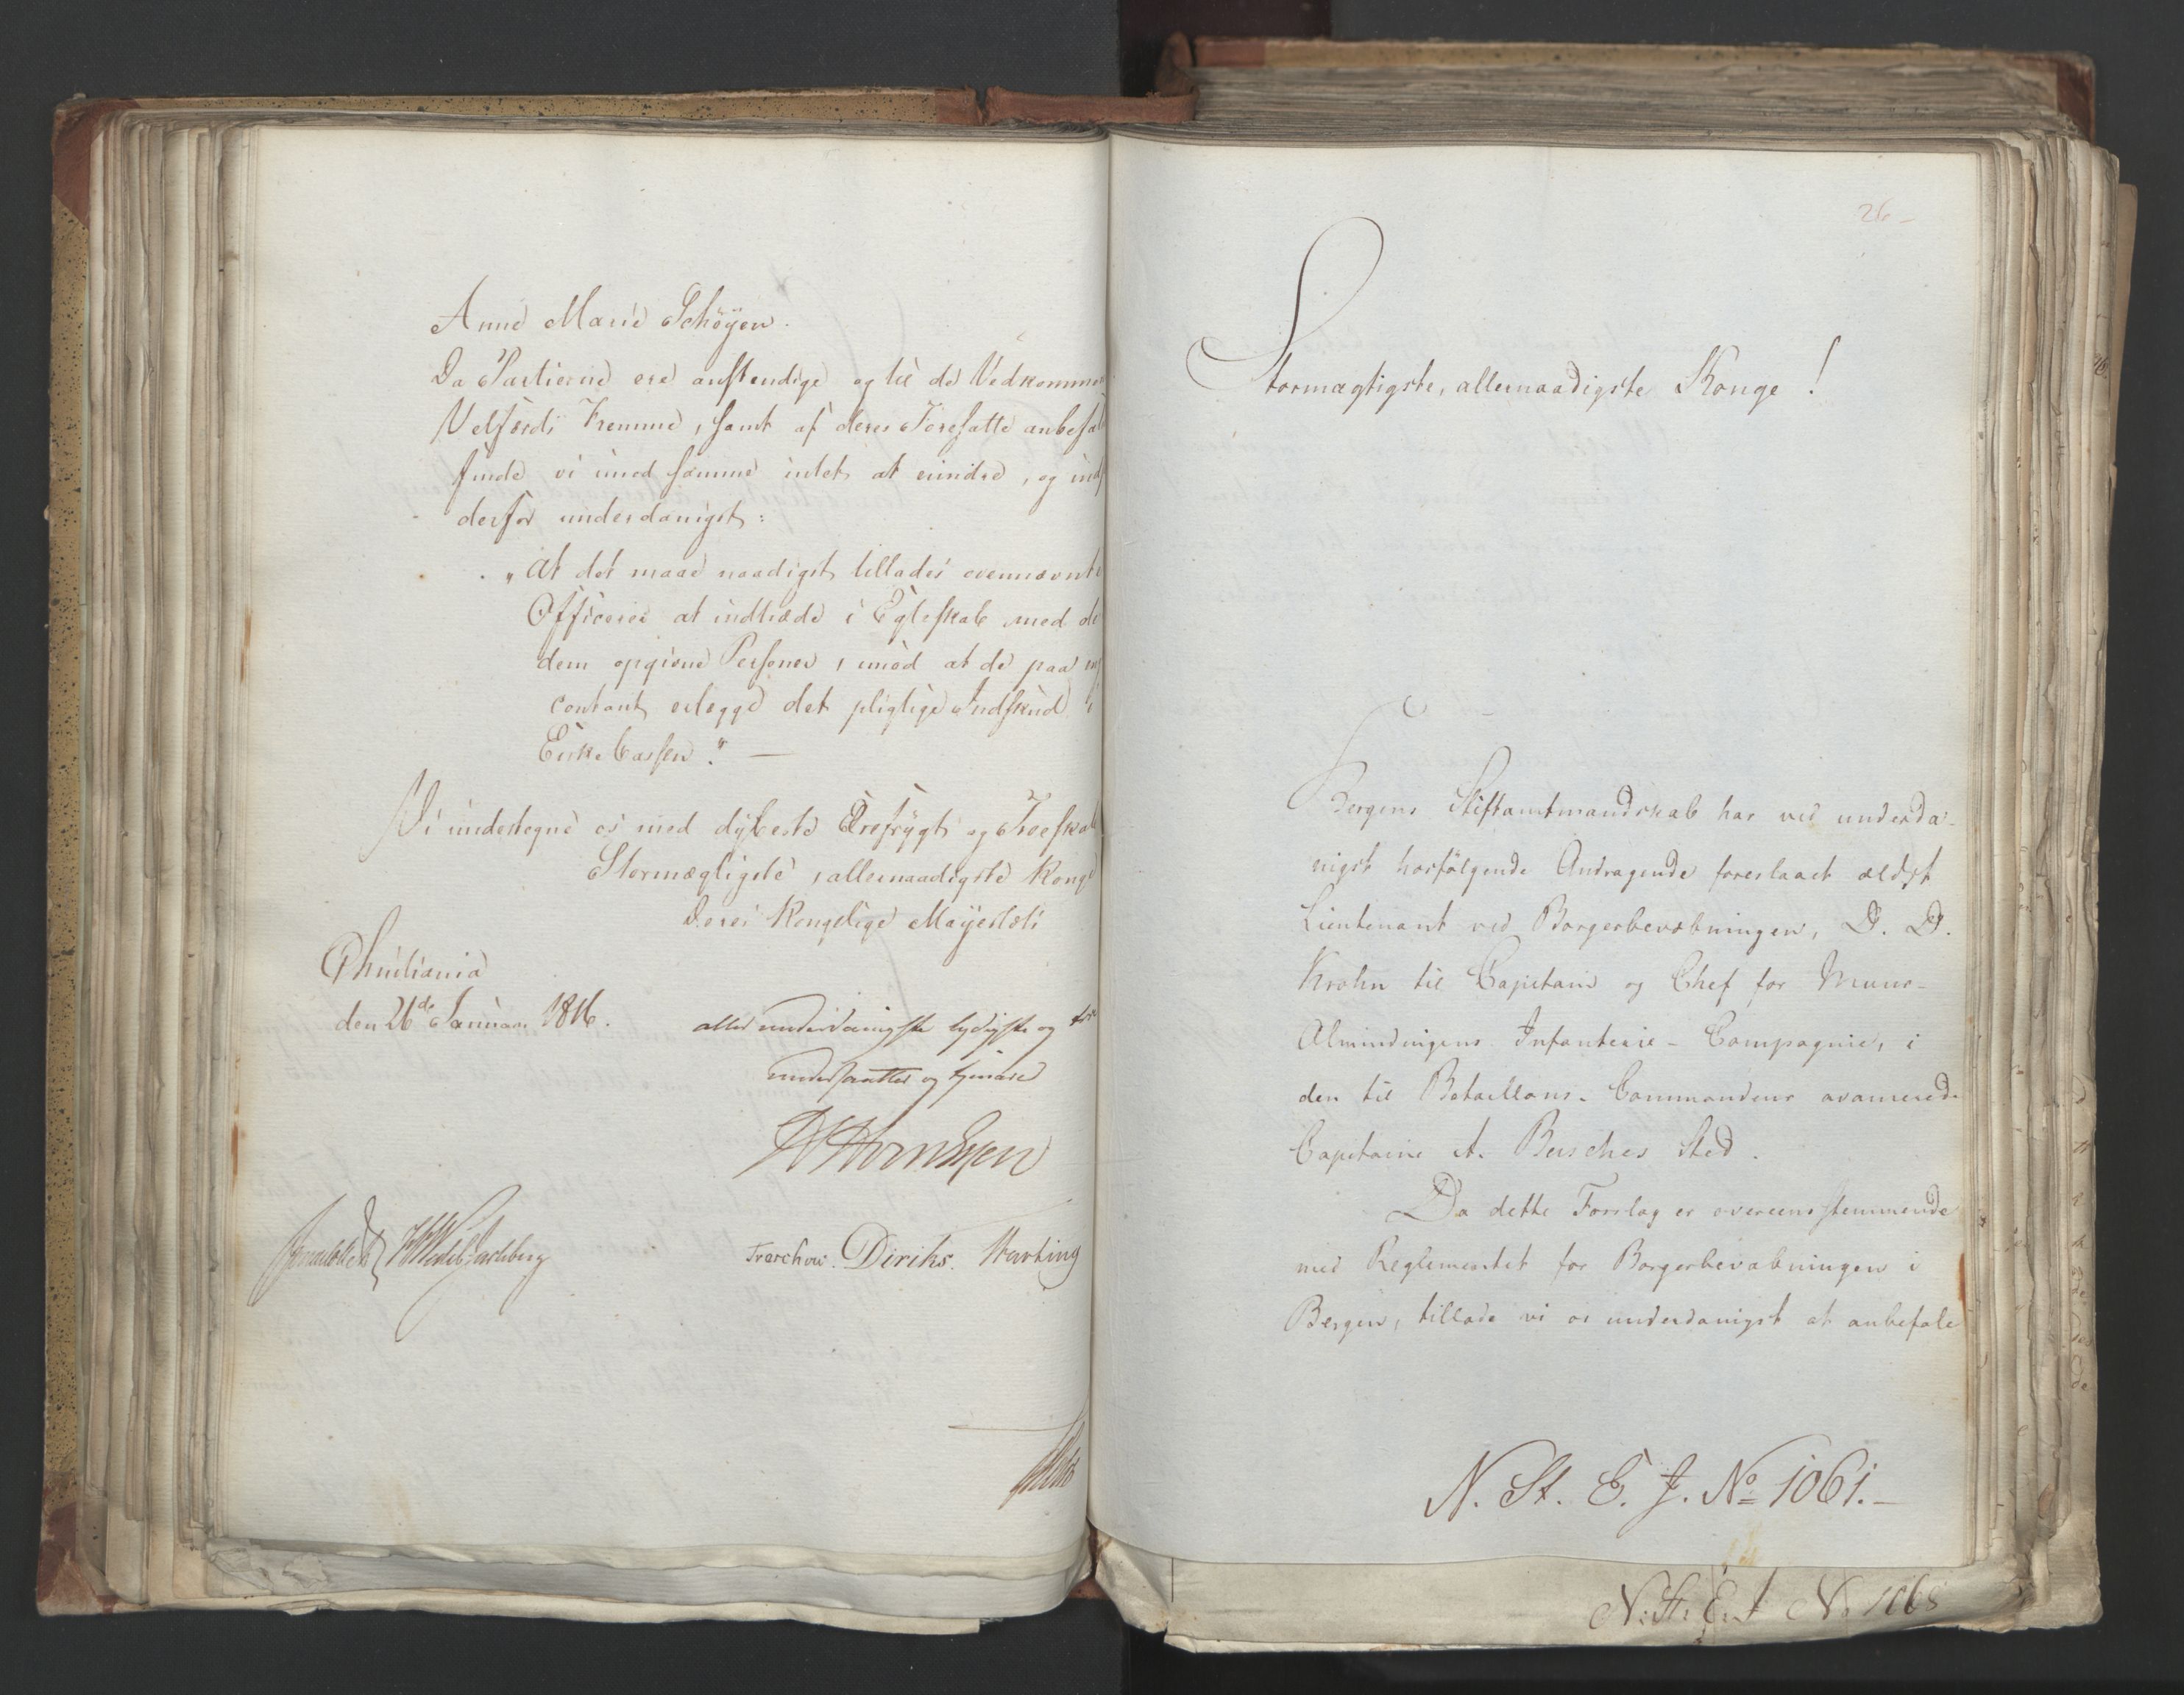 Anne Marie Schöyen.
Da Partierne ere anstendige og til de Vedkomme
Velfærds Fremme, samt af deres Foresatte anbefal
finde vi imod samme intet at erindre, og ind
derfor underdanigst:
"At det maae naadigst tillades ovennævnte
Officerer at indtræde i Egteskab med de
dem opgivne Personer, imod at de paa
contant erlegge det pligtige Indskud i
Enke Cassen." —
Vi undertegne os med dybeste Ærefrygt og Troeskab
Stormægtigste, allernaadigste Konge
Deres Kongelige Mayestæts
Christiania
den 26de Januar 1816.
allerunderdanigste lydigste og troe
undersaatter og tjenere
Sommerhielm HWedelJarlsberg
Treschow. Diriks. Hansing
26–
Stormægtigste, allernaadigste Konge!
Bergens Stiftamtmandskab har ved underda-
nigst hosfölgende Andragende foreslaaet ældst
Lieutenant ved Borgerbevæbningen, D. D.
Krohn til Capitain og Chef for Muur-
Almindingens Infanterie-Compagnie, i
den til Bataillons-Commandeur avancerede
Capitaine A. Busches Sted.
Da dette Forslag er overeensstemmende
med Reglementet for Borgerbevæbningen i
Bergen, tillade vi os underdanigst at anbefale
N. St. E. J. No 1061.–
N. St. Ext No 1068